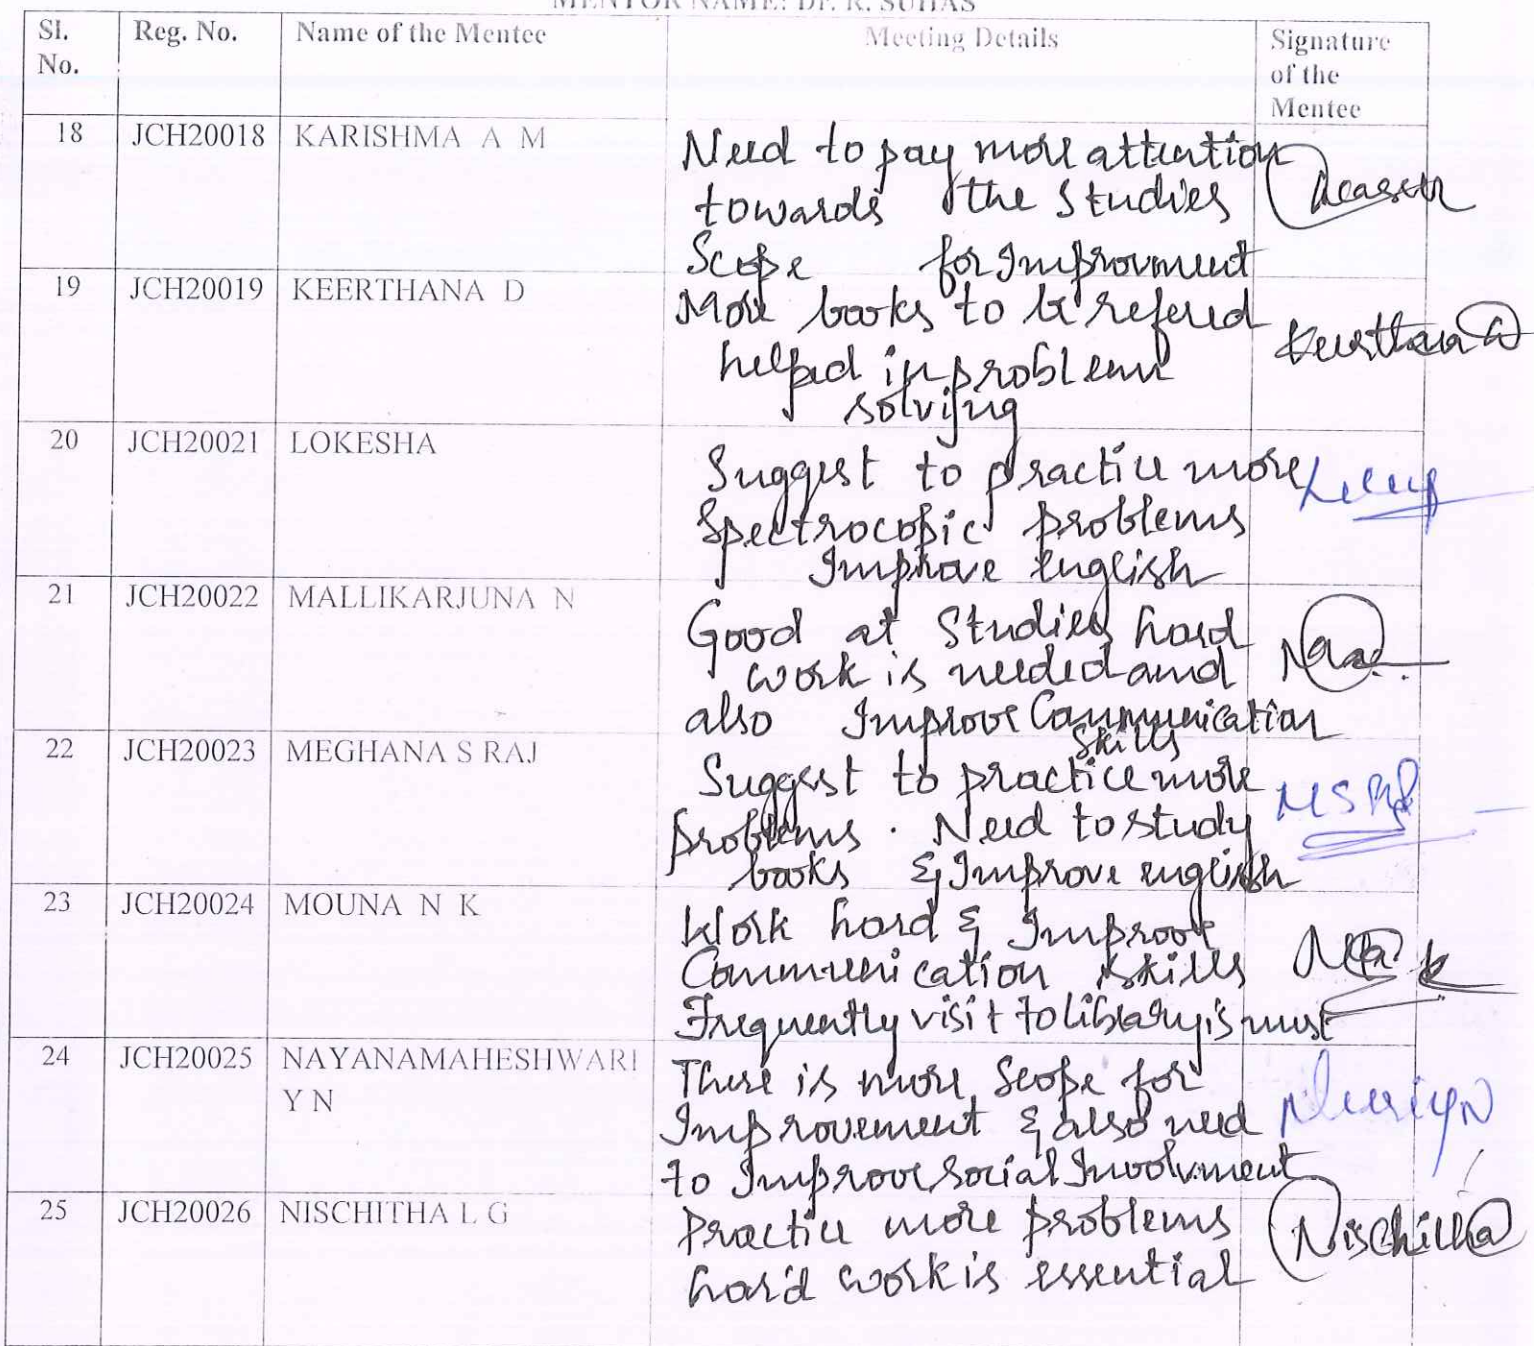 MENTOR NAME: Dr. R. SUHAS
Sl. No. Reg. No. Name of the Mentee Meeting Details Signature of the Mentee
18 JCH20018 KARISHMA A M
Need to pay more attention
towards the Studies
Scope for Improvment
19 JCH20019 KEERTHANA D
More books to be refered
helped in problem
solving
Keerthana D
20 JCH20021 LOKESHA
Suggest to practice more
Spectrocopic problems
Improve english
21 JCH20022 MALLIKARJUNA N
Good at Studies hard
work is needed and
also Improve Communication
Skills
22 JCH20023 MEGHANA S RAJ
Suggest to practice more
problems. Need to study
books & Improve english
23 JCH20024 MOUNA N K
Work hard & Improve
Communication skills
Frequently visit to library is must
24 JCH20025 NAYANAMAHESHWARI
Y N
There is more Scope for
Improvement & also need
to Improve social Involvment
25 JCH20026 NISCHITHA L G
Practice more problems
hard work is essential
Nischitha